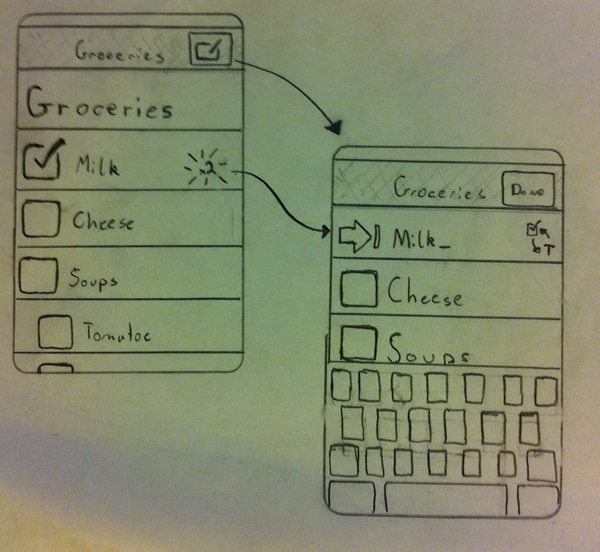 Groceries
Groceries
Milk 2
Cheese
Soups
Tomatoe
Groceries Done
Milk_
T
Cheese
Soups